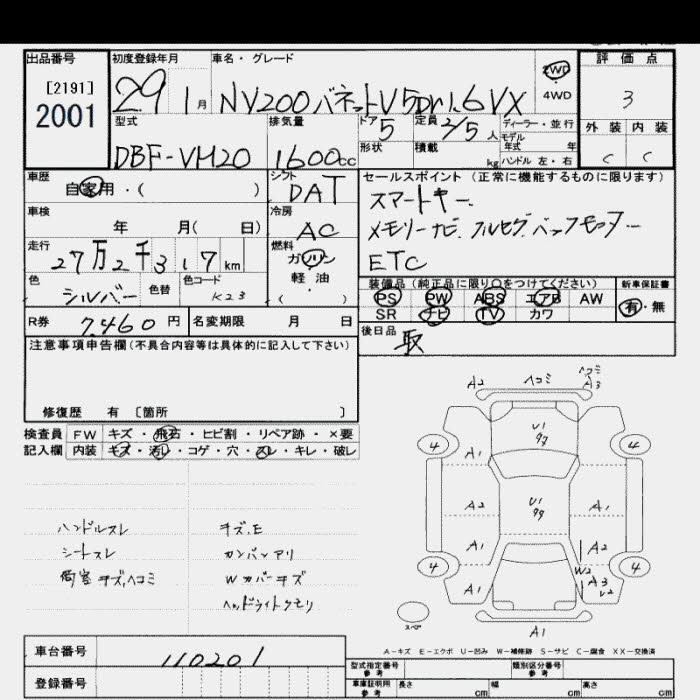 出品番号 初度登録年月 車名・グレード 2WD 評価点
[2191] 29 1月 NV200 バネットV5Dr1.6VX 4WD 3
2001
型式 排気量 ドア 5 定員 2/5人 ディーラー・並行 外装 内装
モデル年式 年
DBF-VM20 1600cc 形状 積載 kg ハンドル 左・右 C C
車歴 自家用・( ) シフト DAT セールスポイント (正常に機能するものに限ります)
スマートキー
車検 年 月( 日) 冷房 AC メモリーナビ.フルセグ.バックモニター
走行 27万2千317km 燃料 ガソリン ETC
軽・油
( )
色 シルバー 色替 色コード K23 装備品(純正品に限り〇をつけてください) 新車保証書
PS PW ABS エアB AW 有・無
SR ナビ TV カワ
R券 7,460円 名変期限 月 日 後日品 取
注意事項申告欄(不具合内容等は具体的に記入して下さい)
修復歴 有 〔箇所 〕
検査員 FW キズ・飛石・ヒビ割・リペア跡・×要
記入欄 内装 キズ・汚レ・コゲ・穴・スレ・キレ・破レ
ハンドルスレ キズ.E
シートスレ カンバンアリ
荷室キズ.ヘコミ Wカバーキズ
ヘッドライトクモリ
A2 ヘコミ ヘコミ A3
U1
99
4 A1 4
A2 U1 99 A1
A1 A2
4 W2 4
A1 A3
スペア A1
A-キズ E-エクボ U-凹み W-補修跡 S-サビ C-腐食 XX-交換済
車台番号 110201
型式指定番号 参考 類別区分番号 参考
登録番号 車庫証明用 参考 長さ cm 幅 cm 高さ cm